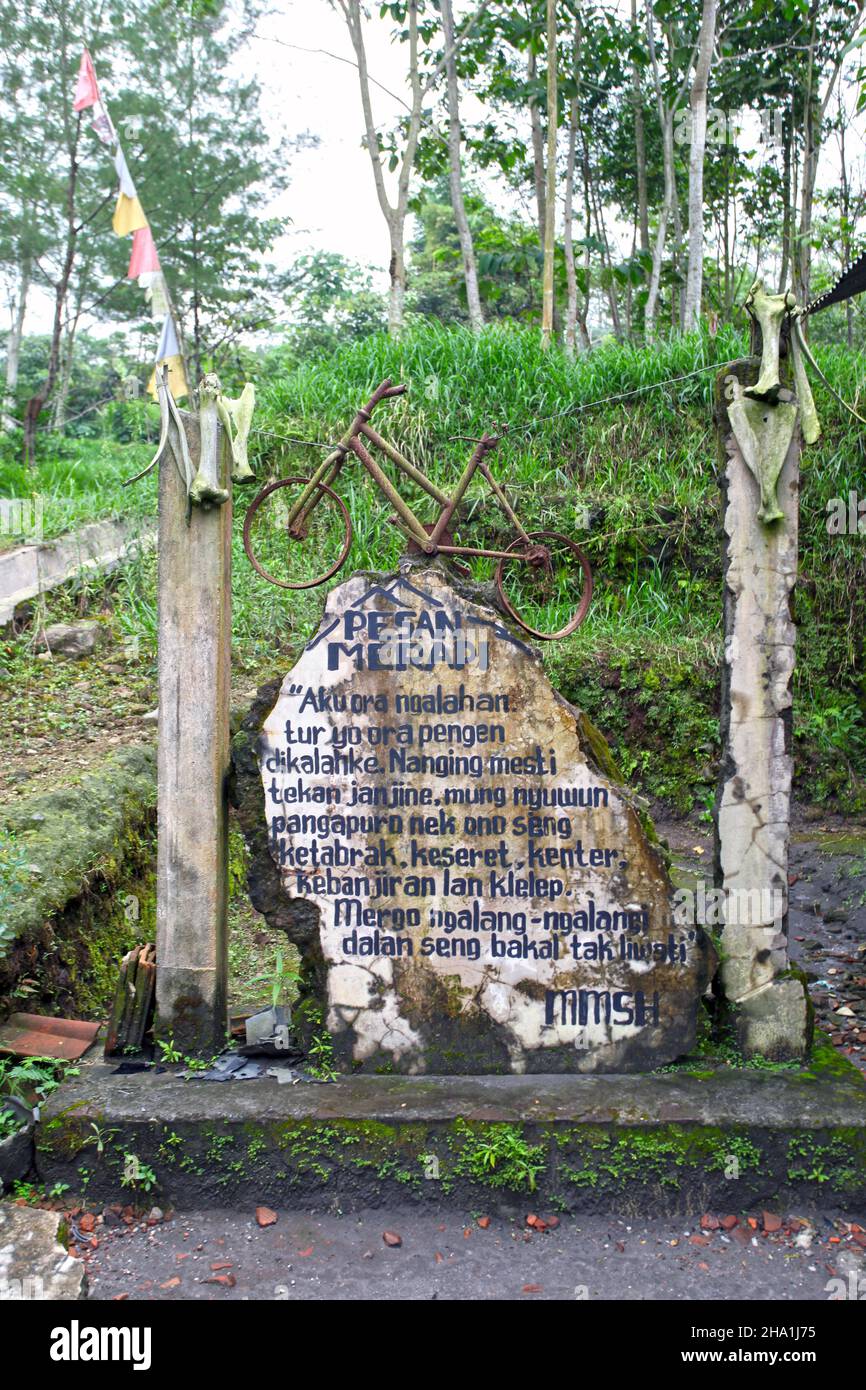 PESAN
MERAPI
"Aku ora ngalahan.
tur yo ora pengen
dikalahke. Nanging mesti
tekan janjine, mung nyuwun
pangapuro nek ono seng
ketabrak, keseret, kenter,
kebanjiran lan klelep.
Mergo ngalang-ngalangi
dalan seng bakal tak liwati"
MMSH
alamy
Image ID: 2HA1J75
www.alamy.com